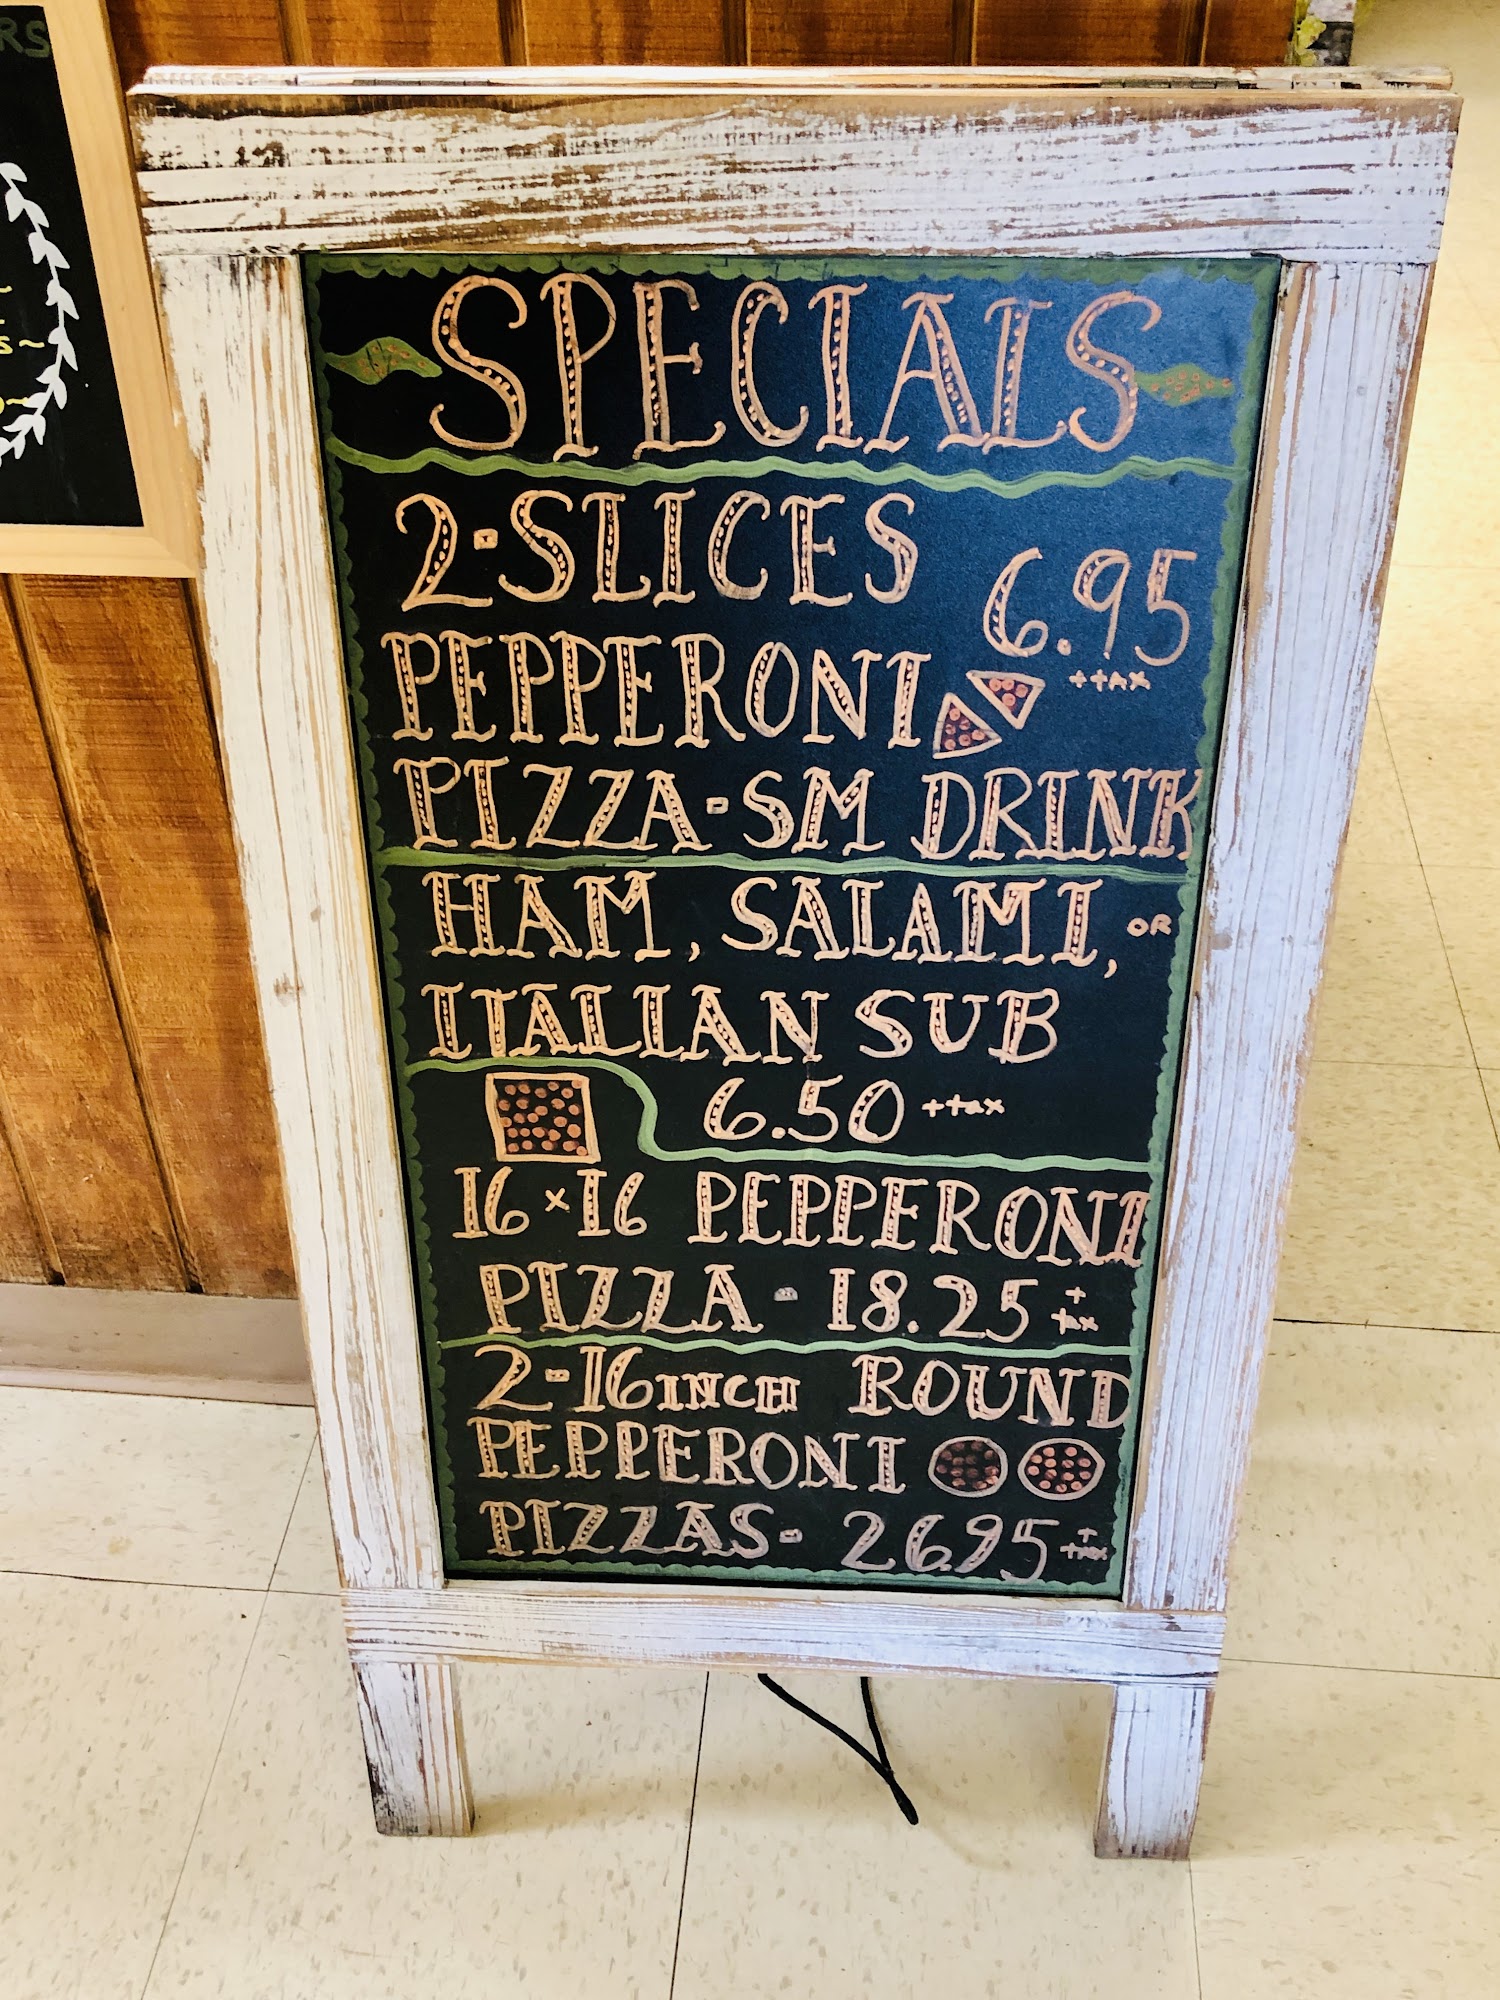 RS
SPECIALS
2-SLICES 6.95
PEPPERONI + TAX
PIZZA-SM DRINK
HAM, SALAMI, OR
ITALIAN SUB
6.50 + tax
16 x 16 PEPPERONI
PIZZA - 18.25 + tax
2-16 INCH ROUND
PEPPERONI
PIZZAS- 26.95 + tax